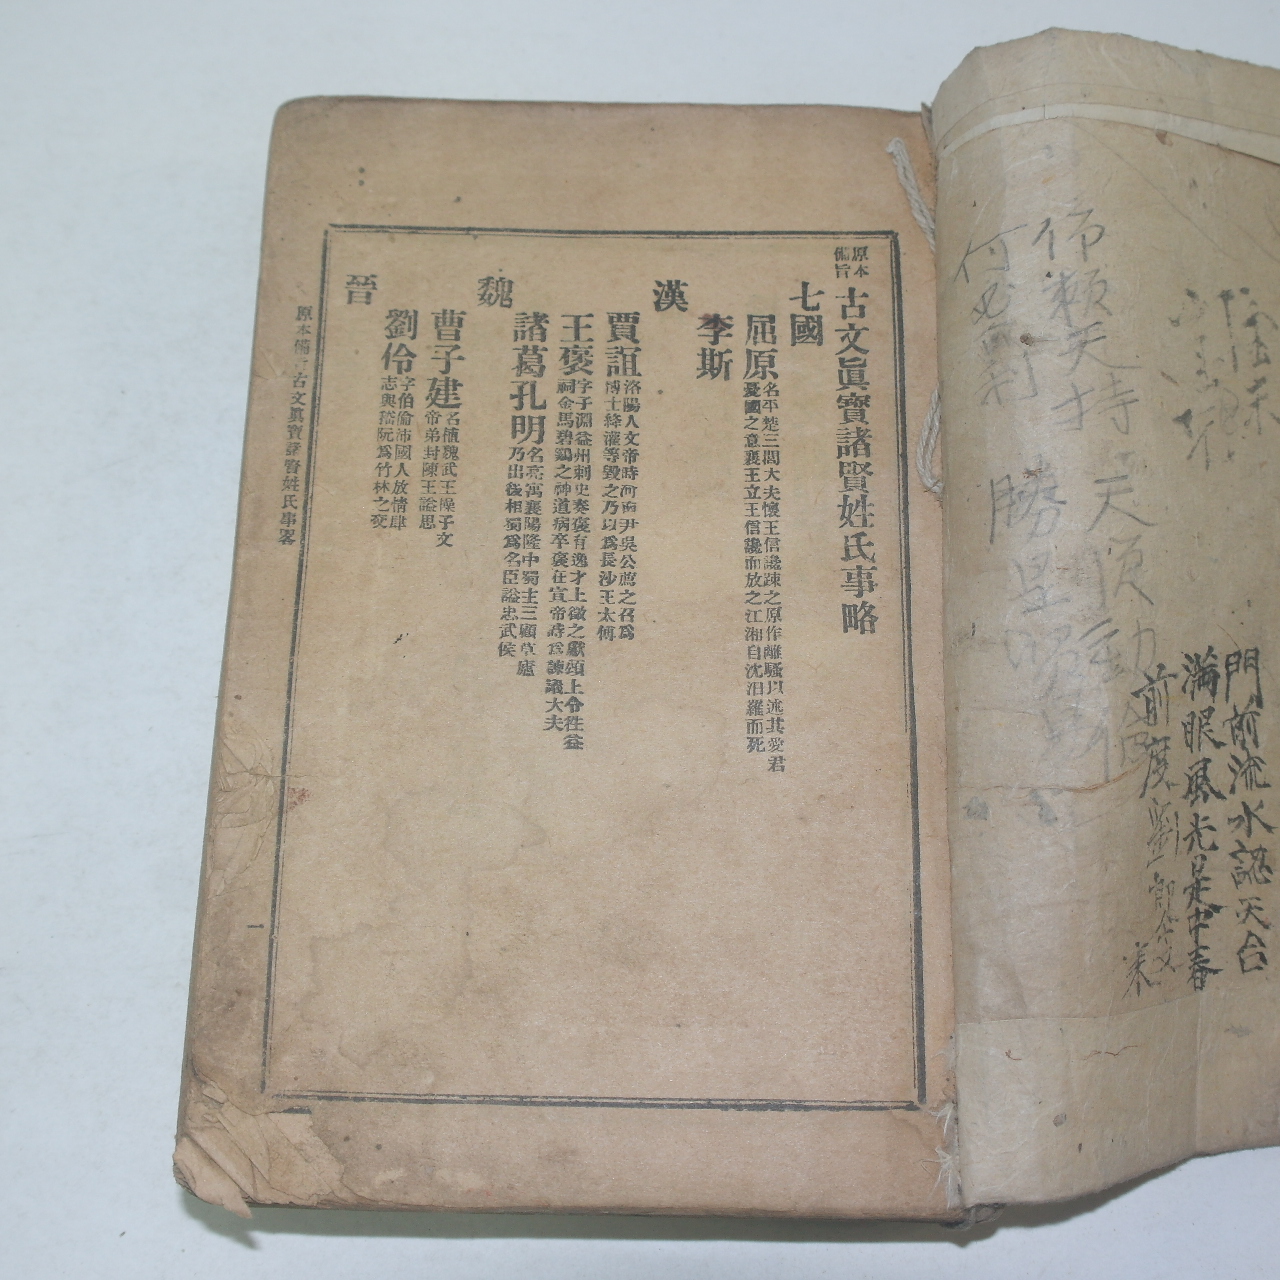 門前流水認天台
滿眼風光是中春
前度劉郎今又來
原本備旨
古文眞寶諸賢姓氏事略
七國
屈原 名平楚三閭大夫懷王信讒疎之原作離騷以述其愛君
憂國之意襄王立王信讒而放之江湘自沈汨羅而死
李斯
漢
賈誼 洛陽人文帝時河南尹吳公薦之召爲
博士絳灌等毀之乃以爲長沙王太傅
王褒 字子淵益州刺史奏褒有逸才上徵之獻頌上令往益
祠金馬碧鷄之神道病卒褒在宣帝時爲諫議大夫
諸葛孔明 名亮寓襄陽隆中蜀主三顧草廬
乃出後相蜀爲名臣諡忠武侯
魏
曹子建 名植魏武王操子文
帝弟封陳王諡思
晉
劉伶 字伯倫沛國人放情肆
志與嵇阮爲竹林之交
原本備旨古文眞寶諸賢姓氏事畧
一